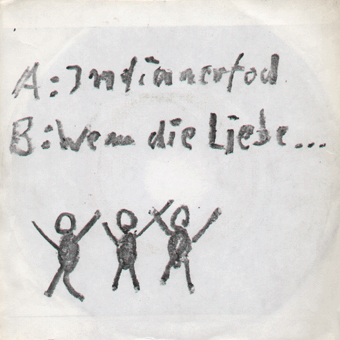 A: Indianertod
B: Wenn die Liebe...